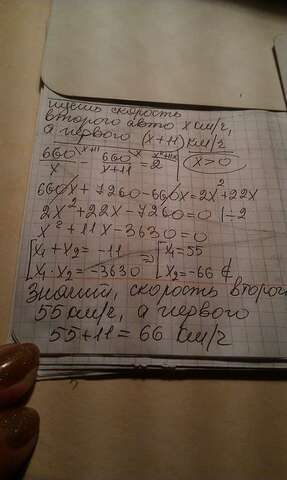 пусть скорость
второго авто x км/г,
а первого (x+11) км/г
660/x \x+11 − 660/x+11 \x = 2 \x²+11x | x>0
660x + 7260 − 660x = 2x² + 22x
2x² + 22x − 7260 = 0 | ÷2
x² + 11x − 3630 = 0
[x₁ + x₂ = −11 ⇒ [x₁ = 55
[x₁ · x₂ = −3630 [x₂ = −66 ∉
Значит, скорость второго
55 км/г, а первого
55+11 = 66 км/г